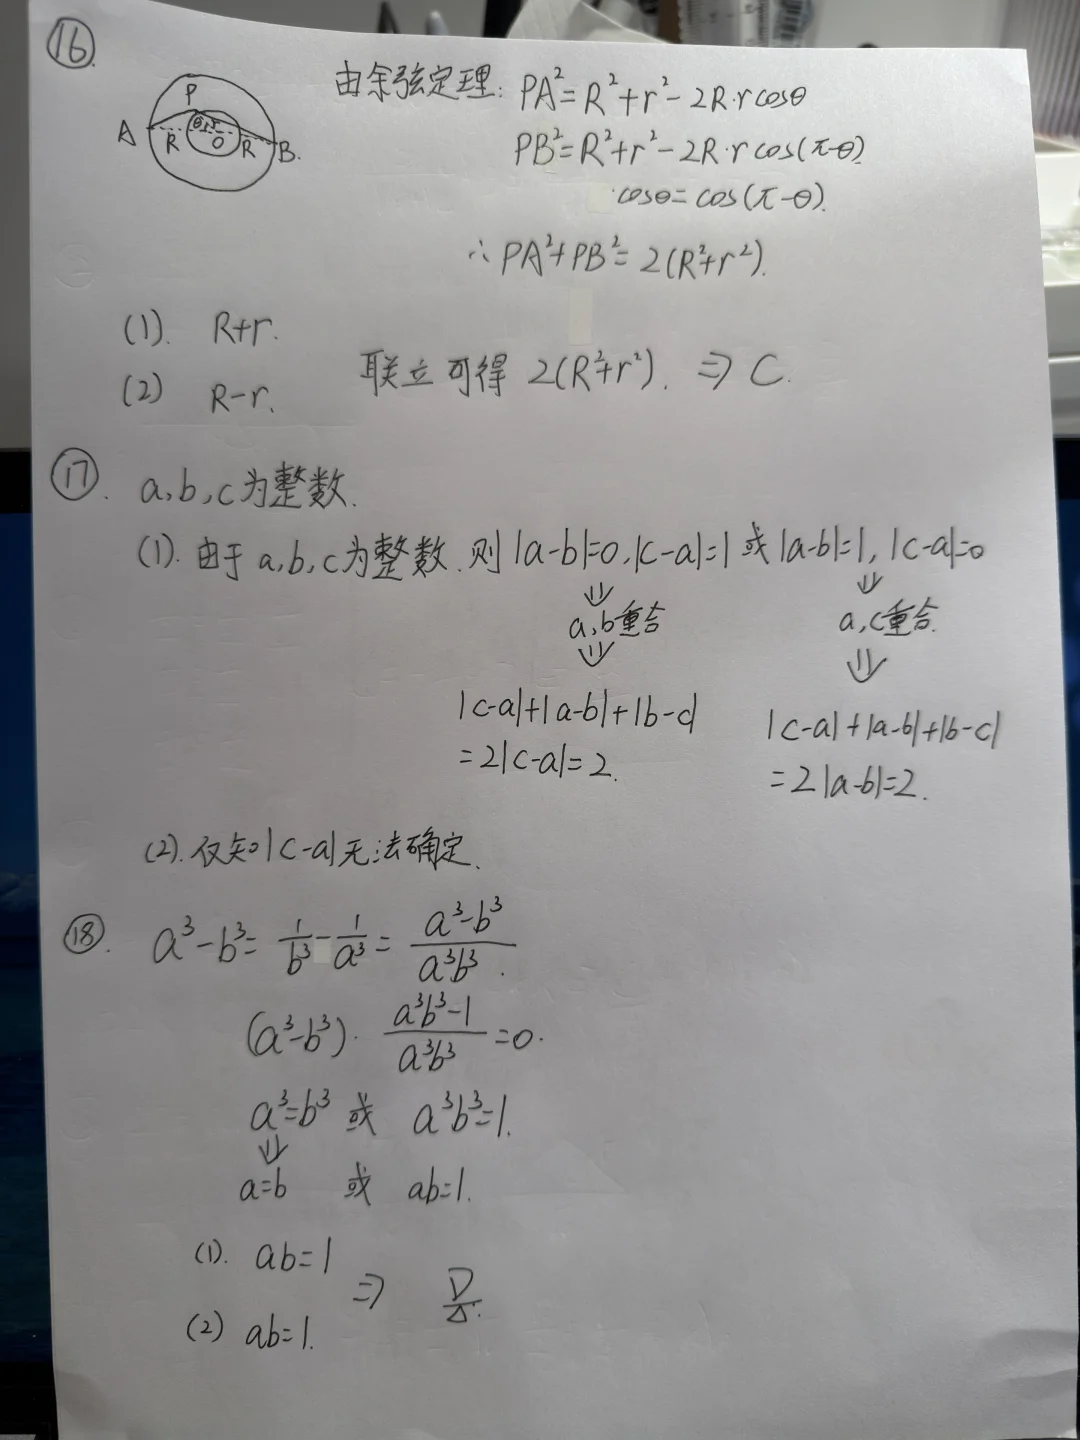 ⑯.
P
A
R
θ
r
O
R
B.
由余弦定理: PA²=R²+r²-2R·rcosθ
PB²=R²+r²-2R·rcos(π-θ)
cosθ=cos(π-θ).
∴PA²+PB²=2(R²+r²).
(1). R+r.
(2) R-r.
联立可得 2(R²+r²). ⇒ C.
⑰. a,b,c为整数.
(1).由于a,b,c为整数.则|a-b|=0,|c-a|=1或|a-b|=1,|c-a|=0
⇓ ⇓
a,b重合 a,c重合.
⇓ ⇓
|c-a|+|a-b|+|b-c| |c-a|+|a-b|+|b-c|
=2|c-a|=2. =2|a-b|=2.
(2).仅知|c-a|无法确定.
⑱. a³-b³= 1/b³ - 1/a³ = (a³-b³)/(a³b³).
(a³-b³)·(a³b³-1)/(a³b³)=0.
a³=b³ 或 a³b³=1.
⇓
a=b 或 ab=1.
(1). ab=1
⇒ D
(2) ab=1.